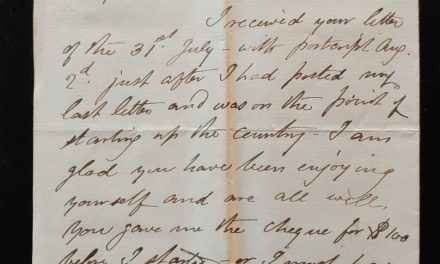 I received your letter
of the 31st July - with postscript Aug.
2d. just after I had posted my
last letter and was on the point of
starting up the country - I am
glad you have been enjoying
yourself and are all well.
You gave me the cheque for $100
before I started - or I must